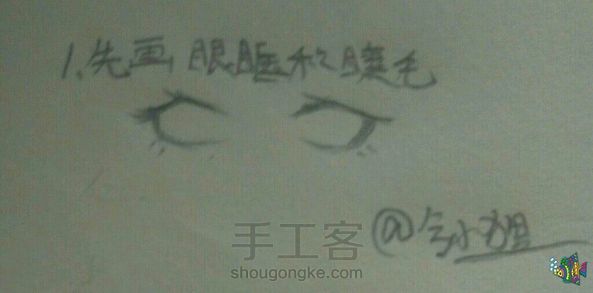 1.先画眼眶和睫毛
手工客
shougongke.com